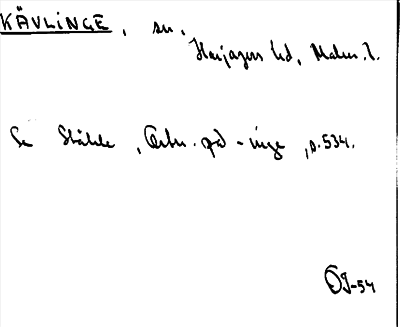 KÄVLINGE, sn.
Harjagers hd, Malm. l.
Se Ståhle, Ortn. på -inge, s. 534.
ÖJ-54